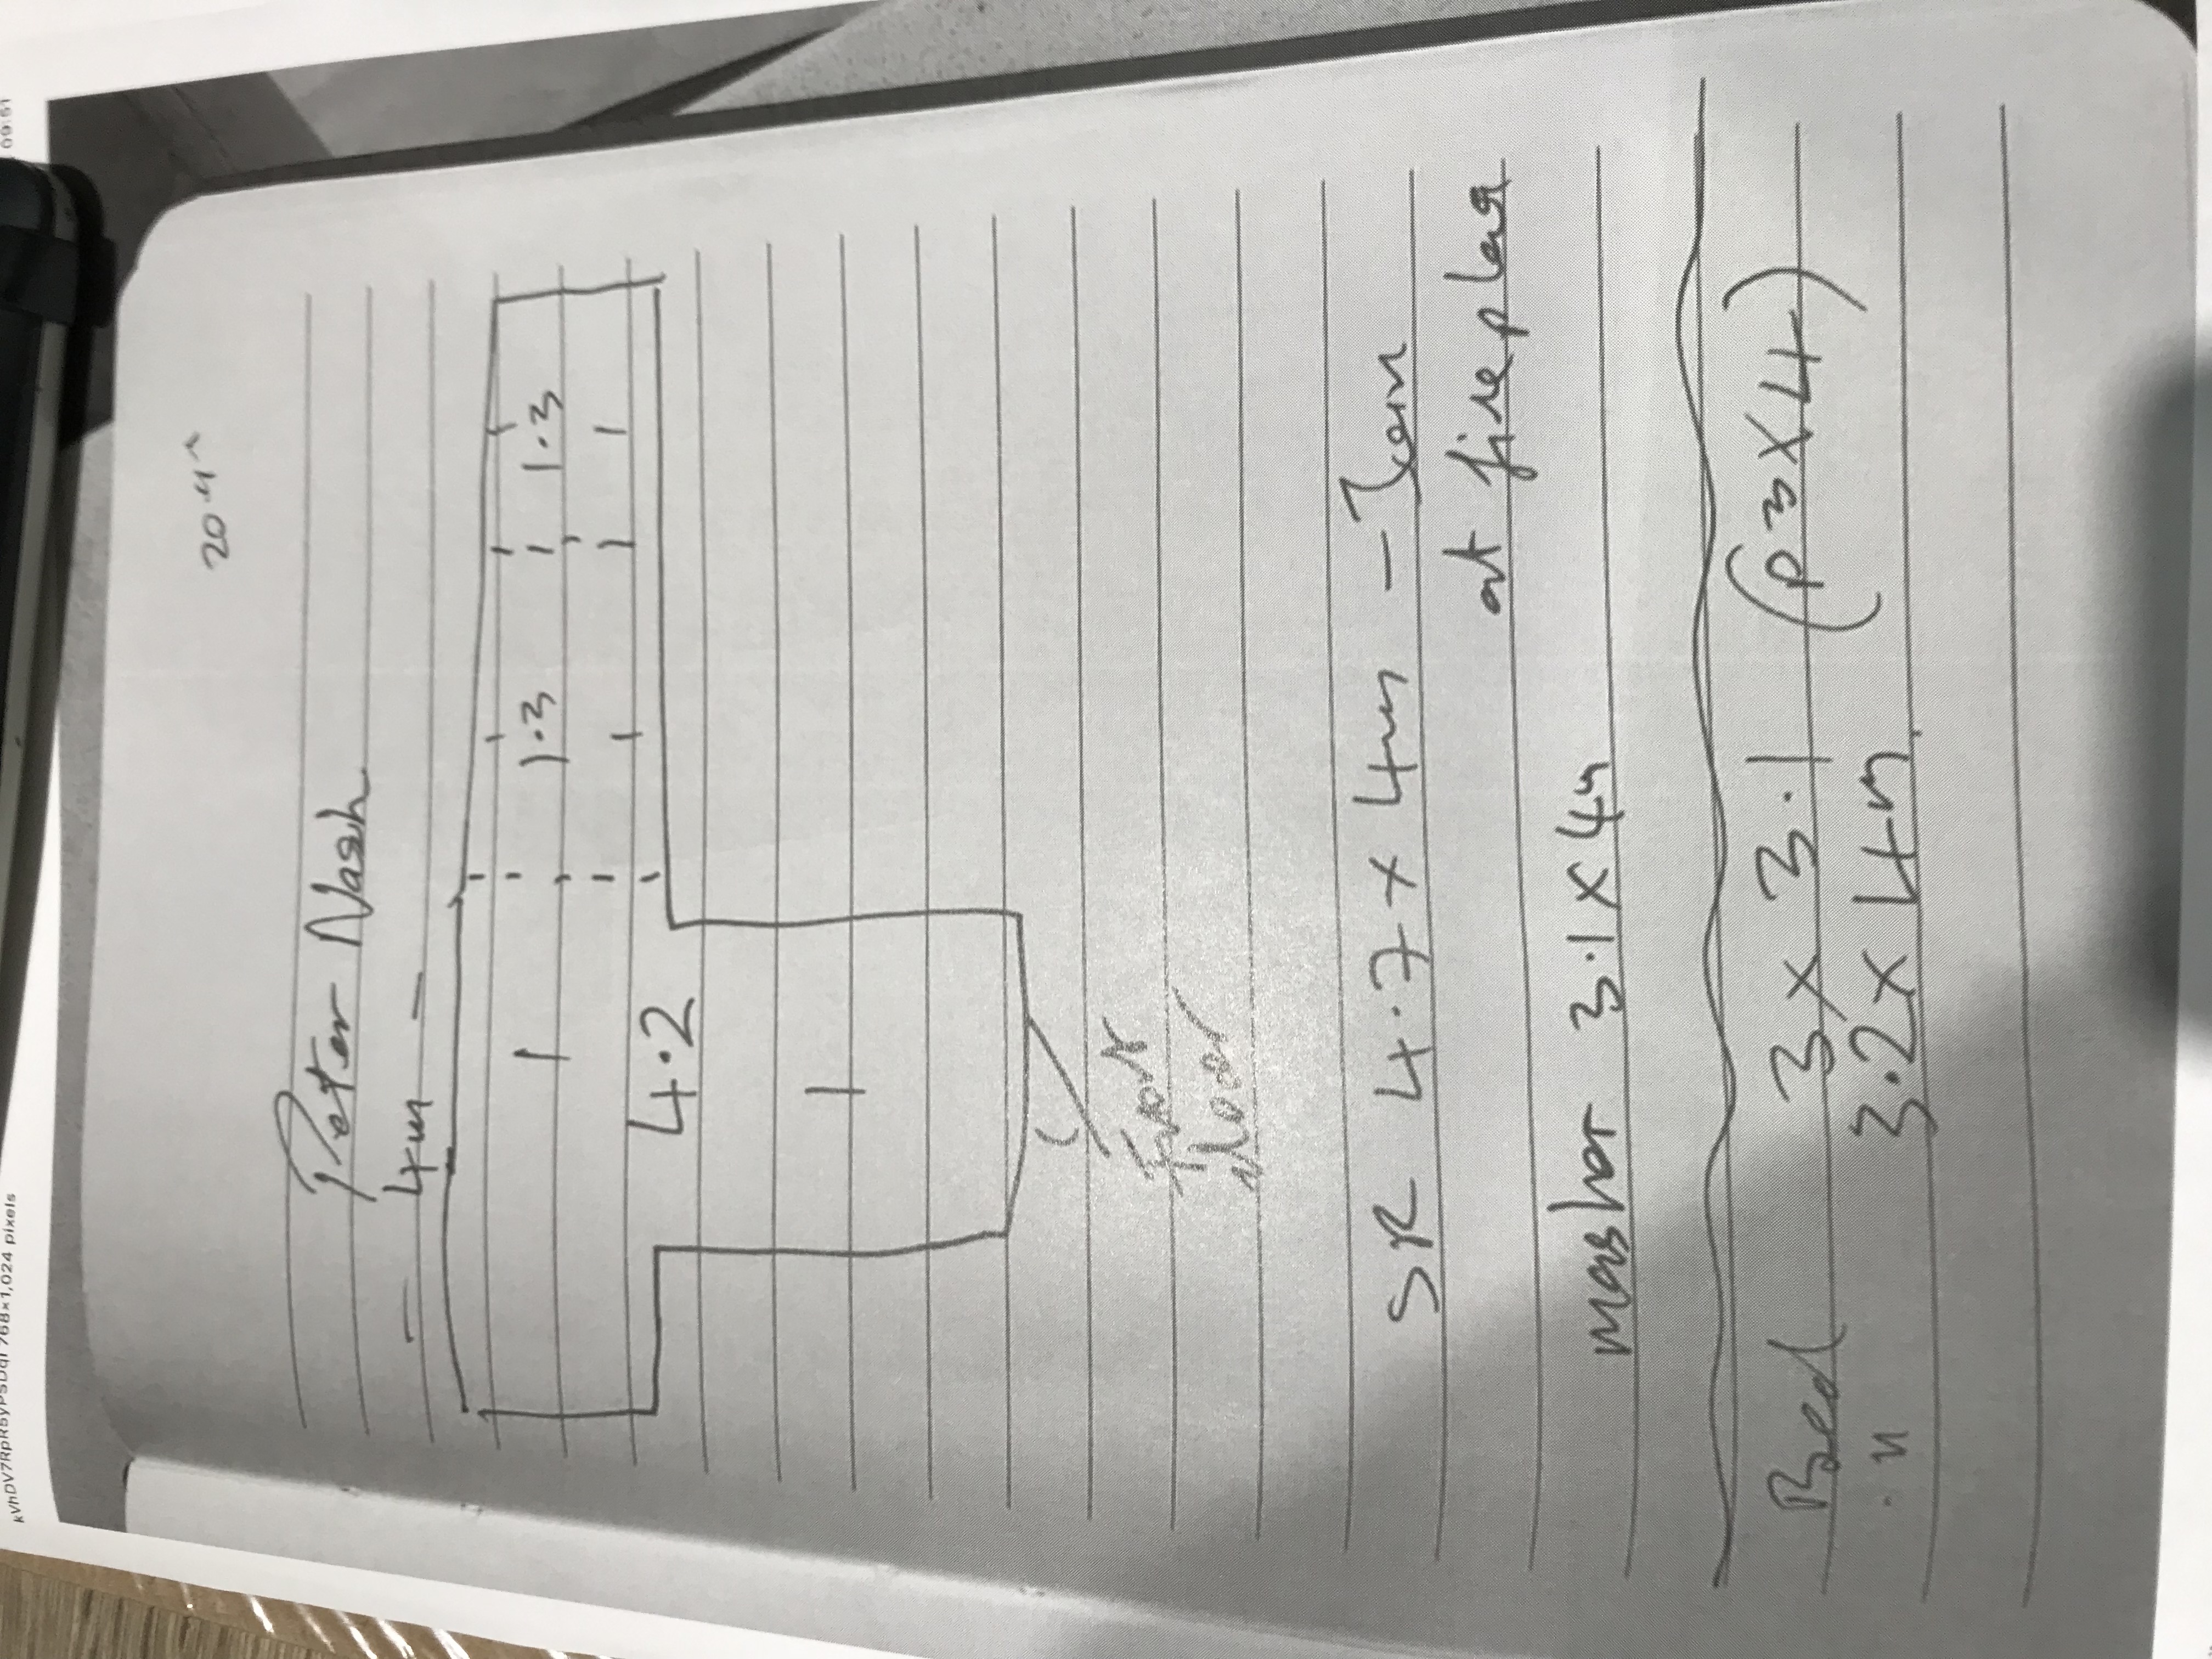 09:51
768×1,024 pixels
Peter Nash
- 4m -
1.3
1.3
4.2
Front
door
SR 4.7 x 4m -
at fireplace
master 3.1 x 4m
Bed 3 x 3.1 (P3x4)
" 3.2 x 4m.